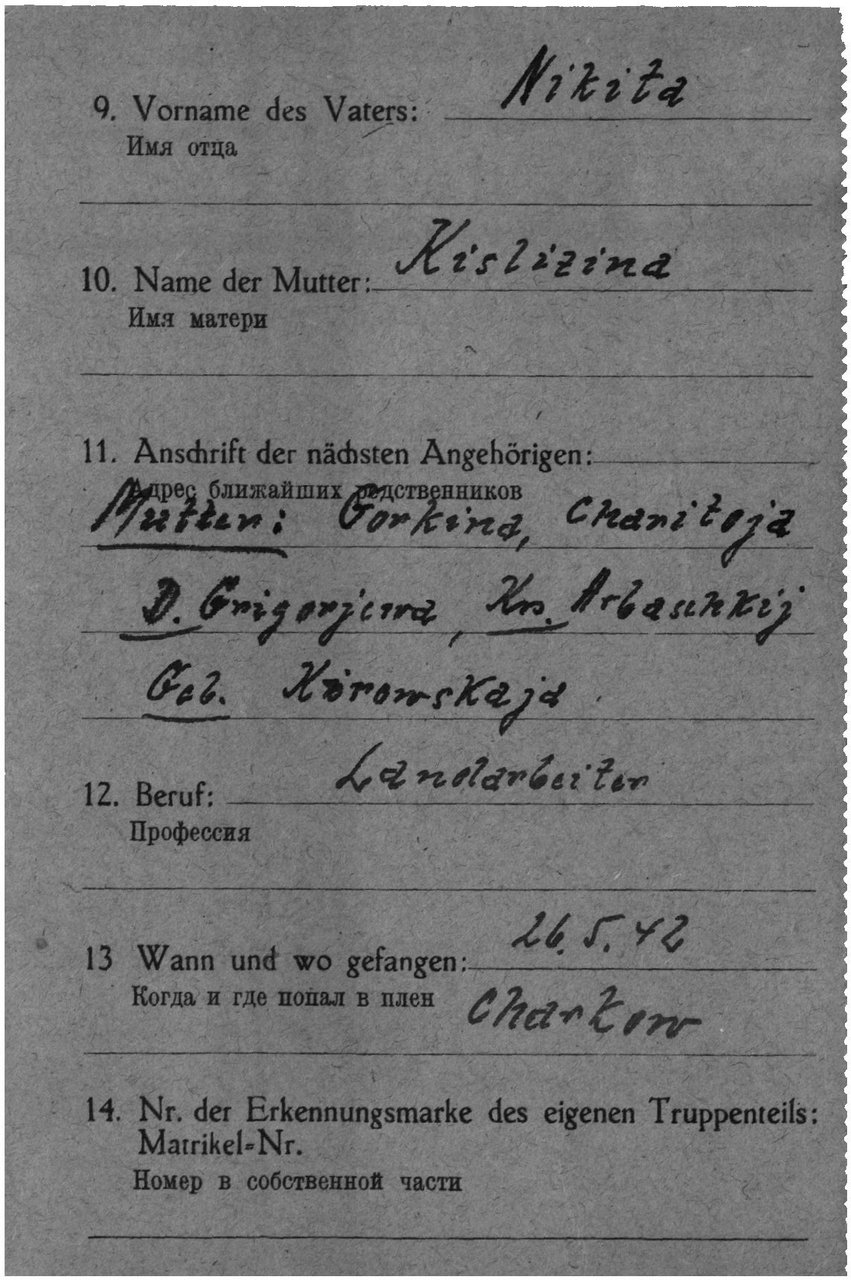 9. Vorname des Vaters: Nikita
Имя отца
10. Name der Mutter: Kislizina
Имя матери
11. Anschrift der nächsten Angehörigen:
Адрес ближайших родственников
Mutter: Gorkina, Charitoja
D. Grigorjewa, Krs. Arbaschkij
Geb. Kirowskaja
12. Beruf: Landarbeiter
Профессия
13 Wann und wo gefangen: 26.5.42
Когда и где попал в плен Charkow
14. Nr. der Erkennungsmarke des eigenen Truppenteils:
Matrikel-Nr.
Номер в собственной части